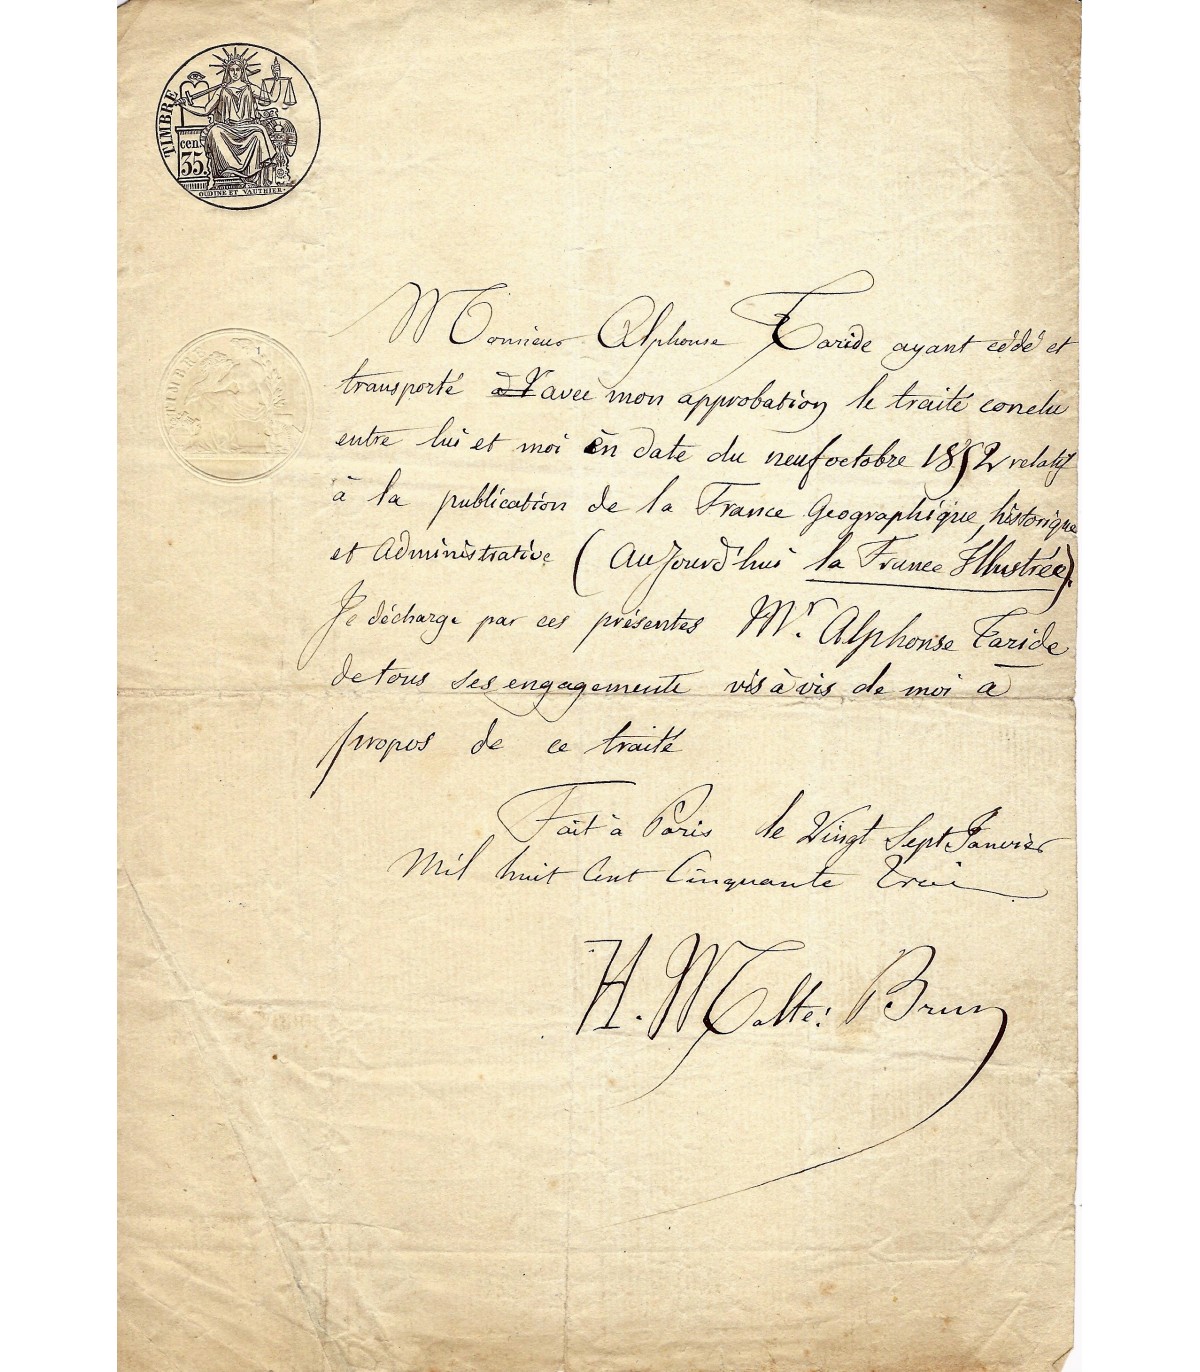 TIMBRE
cen.
35.
OUDINÉ ET VAUTHIER.
TIMBRE
Monsieur Alphonse Taride ayant cédé et
transporté avec mon approbation le traité conclu
entre lui et moi en date du neuf octobre 1852 relatif
à la publication de la France Géographique, historique
et Administrative (aujourd'hui la France Illustrée).
Je décharge par ces présentes Mr. Alphonse Taride
de tous ses engagements vis à vis de moi à
propos de ce traité
Fait à Paris le Vingt Sept Janvier
Mil huit Cent Cinquante trois
H. Malte-Brun